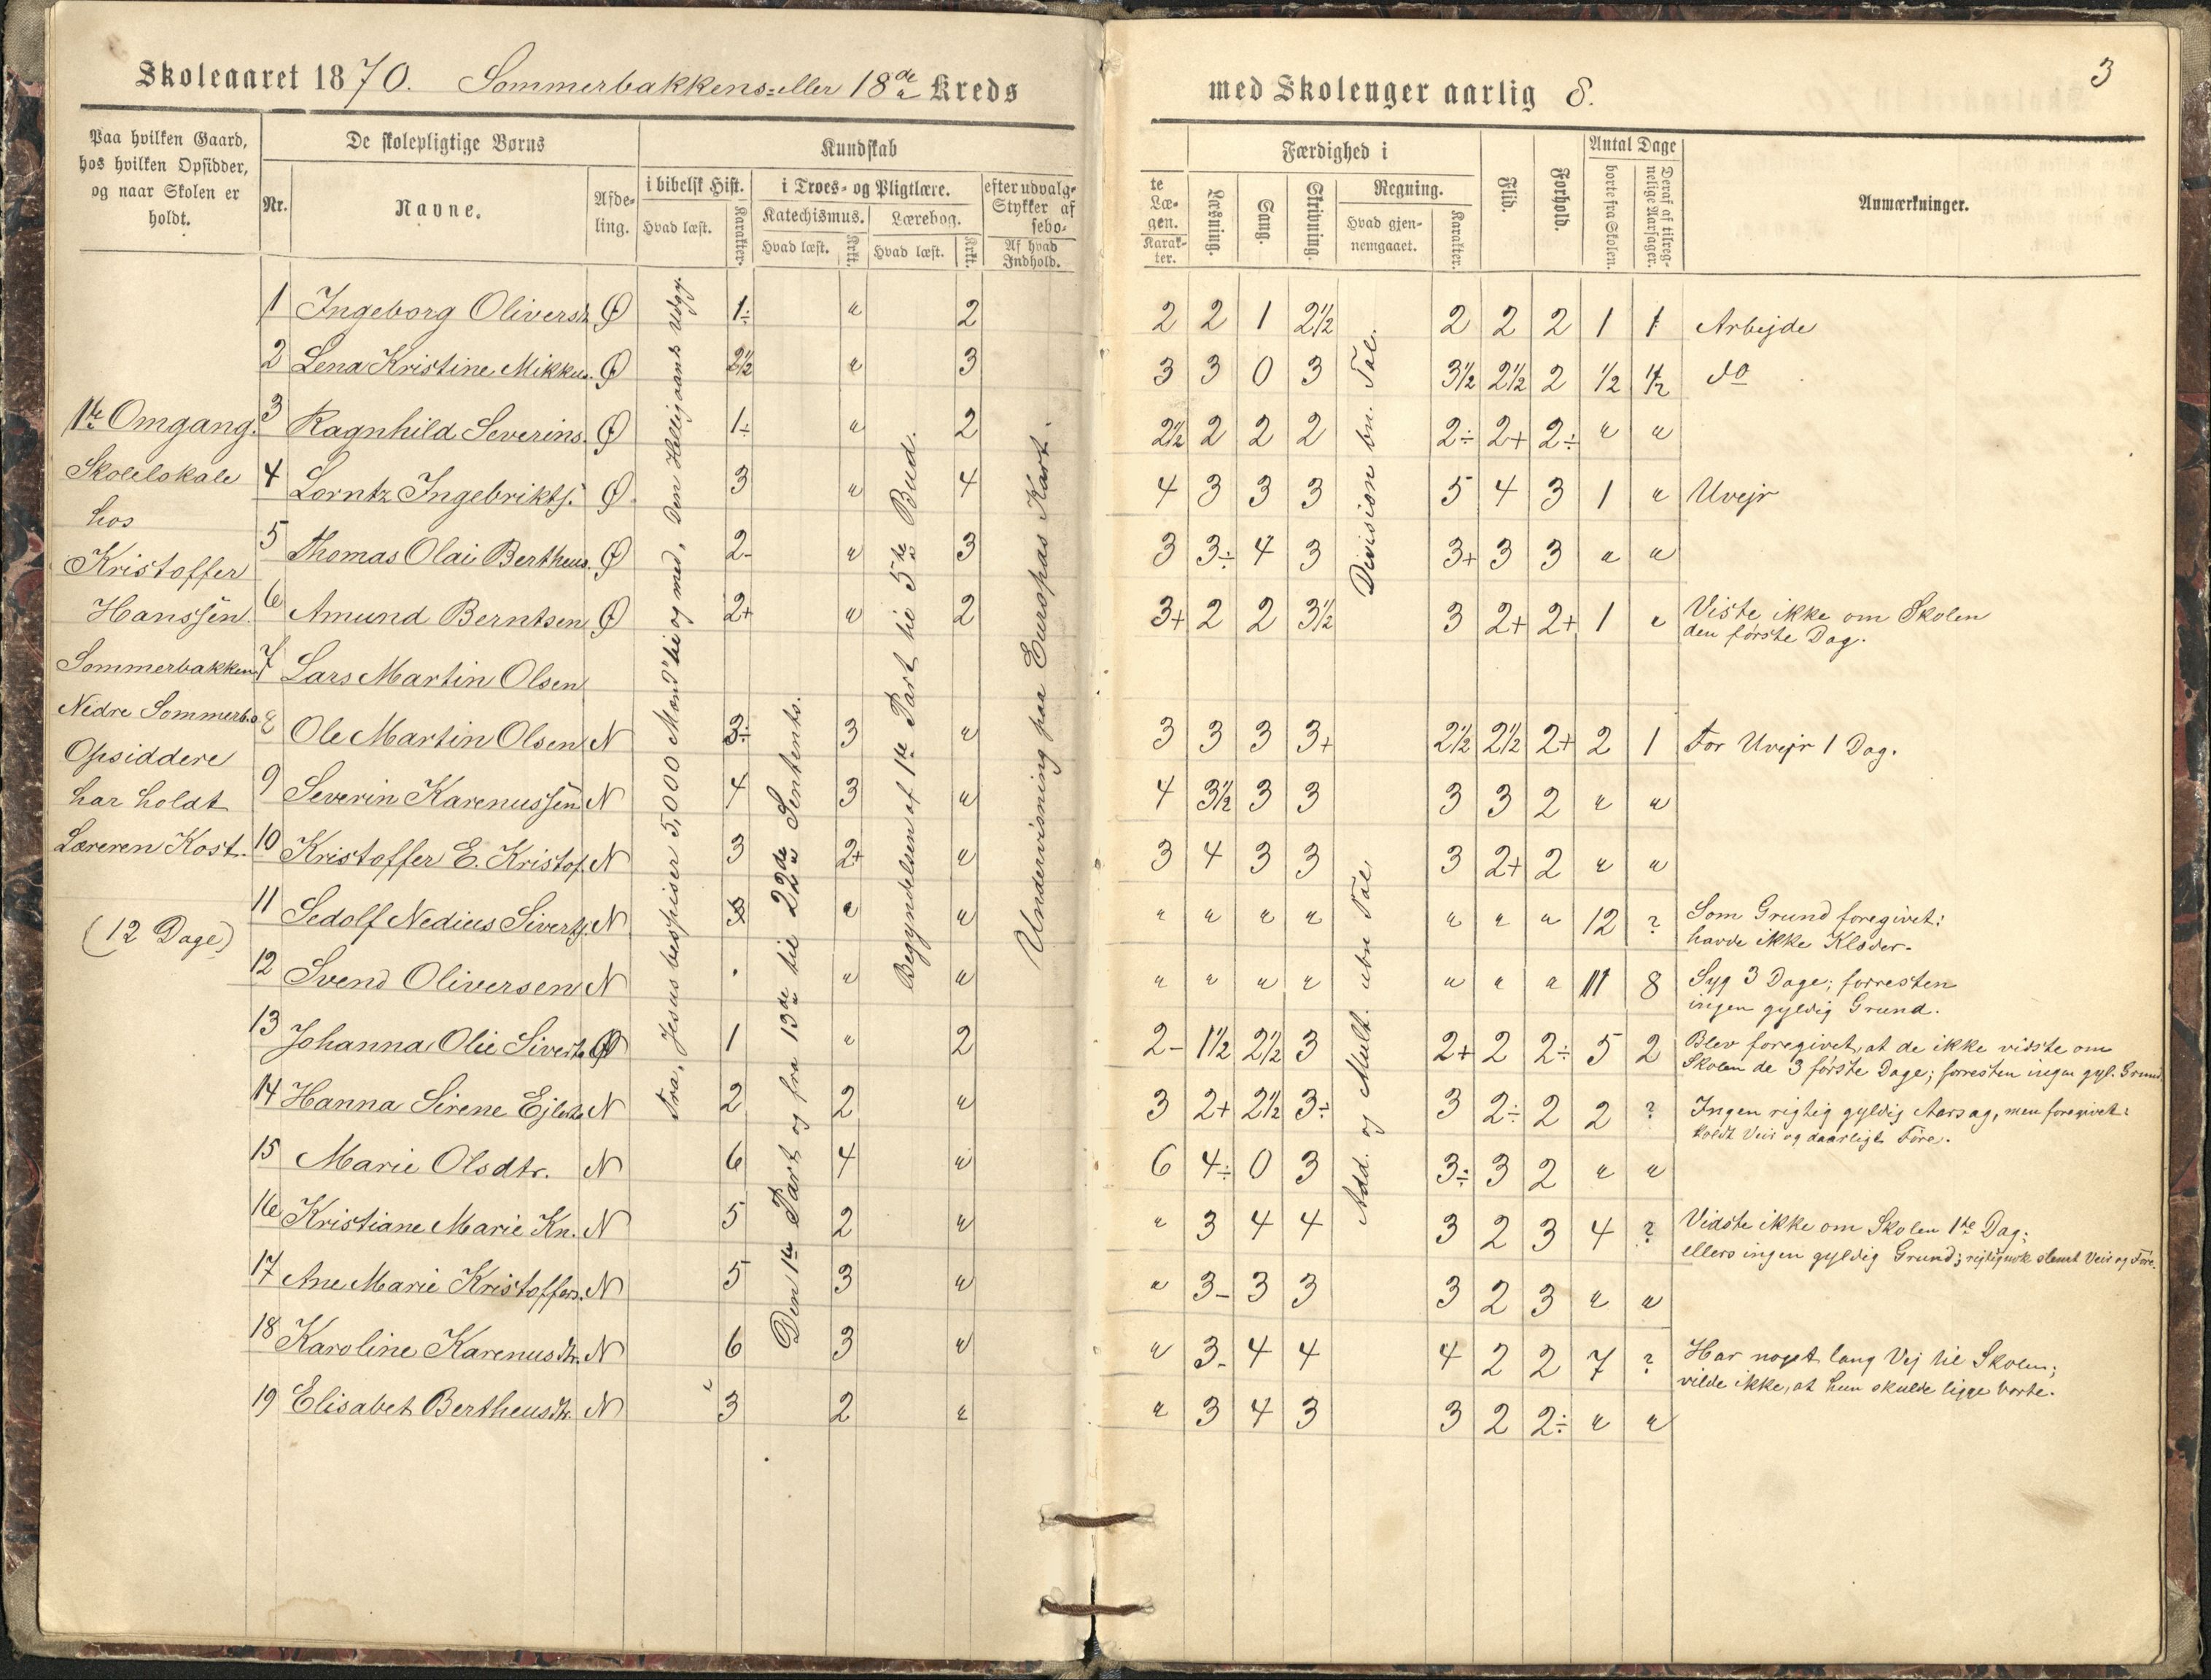 Skoleaaret 1870. Sommerbakkens=eller 18de Kreds
med Skolenger aarlig 8.
3
Paa hvilken Gaard,
hos hvilken Opsidder,
og naar Skolen er
holdt.
De skolepligtige Børns
Nr.
Navne.
Afde-
ling.
Kundskab
i bibelsk Hist.
Hvad læst.
Karakter.
i Troes- og Pligtlære.
Katechismus.
Hvad læst.
Krkt.
Lærebog.
Hvad læst.
Krkt.
efter udvalg-
Stykker af
sebo-
Af hvad
Indhold.
te
Læ-
gen.
Karak-
ter.
Færdighed i
Læsning.
Sang.
Skrivning.
Regning.
Hvad gjen-
nemgaaet.
Karakter.
Flid.
Forhold.
Antal Dage
borte fra Skolen.
Deraf af tilreg-
nelige Aarsager.
Anmærkninger.
1te Omgang.
Skolelokale
hos
Kristoffer
Hanssen
Sommerbakken
Nedre Sommerb.
Opsiddere
har holdt
Læreren Kost.
(12 Dage)
Fra, Jesus bespiser 5,000 Mænd" til og med, Den Helligaands Udgy.
Den 1te Part og fra 13de til 22de Sentents.
Begyndelsen af 1te Part til 5te Bud.
Undervisning paa Europas Kart.
Division bn. Tal.
Add. og Mult. ubn Tal
1 Ingeborg Oliversd. Ø 1÷ " 2 2 2 1 2½ 2 2 2 1 1 Arbejde
2 Lena Kristine Mikkus. Ø 2½ " 3 3 3 0 3 3½ 2½ 2 ½ ½ do
3 Ragnhild Severins. Ø 1÷ " 2 2½ 2 2 2 2÷ 2+ 2÷ " "
4 Lorntz Ingebriktj. Ø 3 " 4 4 3 3 3 5 4 3 1 " Uvejr
5 Thomas Olai Bertheus. Ø 2- " 3 3 3÷ 4 3 3+ 3 3 " "
6 Amund Berntsen Ø 2+ " 2 3+ 2 2 3½ 3 2+ 2+ 1 " Viste ikke om Skolen
den første Dag.
7 Lars Martin Olsen
8 Ole Martin Olsen N 3÷ 3 " 3 3 3 3+ 2½ 2½ 2+ 2 1 For Uvejr 1 Dag.
9 Severin Karenussen N 4 3 " 4 3½ 3 3 3 3 2 " "
10 Kristoffer E. Kristof. N 3 2+ " 3 4 3 3 3 2+ 2 " "
11 Sedolf Nedius Sivertj. N " " " " " " " " " 12 ? Som Grund foregivet:
havde ikke Klæder.
12 Svend Oliversen N . " " " " " " " " " 11 8 Syg 3 Dage; forresten
ingen gyldig Grund.
13 Johanna Olie Siverts. Ø 1 " 2 2- 1½ 2½ 3 2+ 2 2÷ 5 2 Blev foregivet, at de ikke vidste om
Skolen de 3 første Dage; forresten ingen gyl. Grund.
14 Hanna Sirene Ejlerts. N 2 2 " 3 2+ 2½ 3÷ 3 2÷ 2 2 ? Ingen rigtig gyldig Aarsag, men foregivet:
koldt Veir og daarligt Føre.
15 Marie Olsdtr. N 6 4 " 6 4÷ 0 3 3÷ 3 2 " "
16 Kristiane Marie Kn. N 5 2 " " 3 4 4 3 2 3 4 ? Vidste ikke om Skolen 1te Dag;
ellers ingen gyldig Grund; rigtignok slemt Veir og Føre.
17 Ane Marie Kristoffers. N 5 3 " " 3- 3 3 3 2 3 " "
18 Karoline Karenusdtr. N 6 3 " " 3- 4 4 4 2 2 7 ? Har noget lang Vej til Skolen;
vilde ikke, at hun skulde ligge borte.
19 Elisabet Bertheusdtr. N " 3 2 " " 3 4 3 3 2 2÷ " "